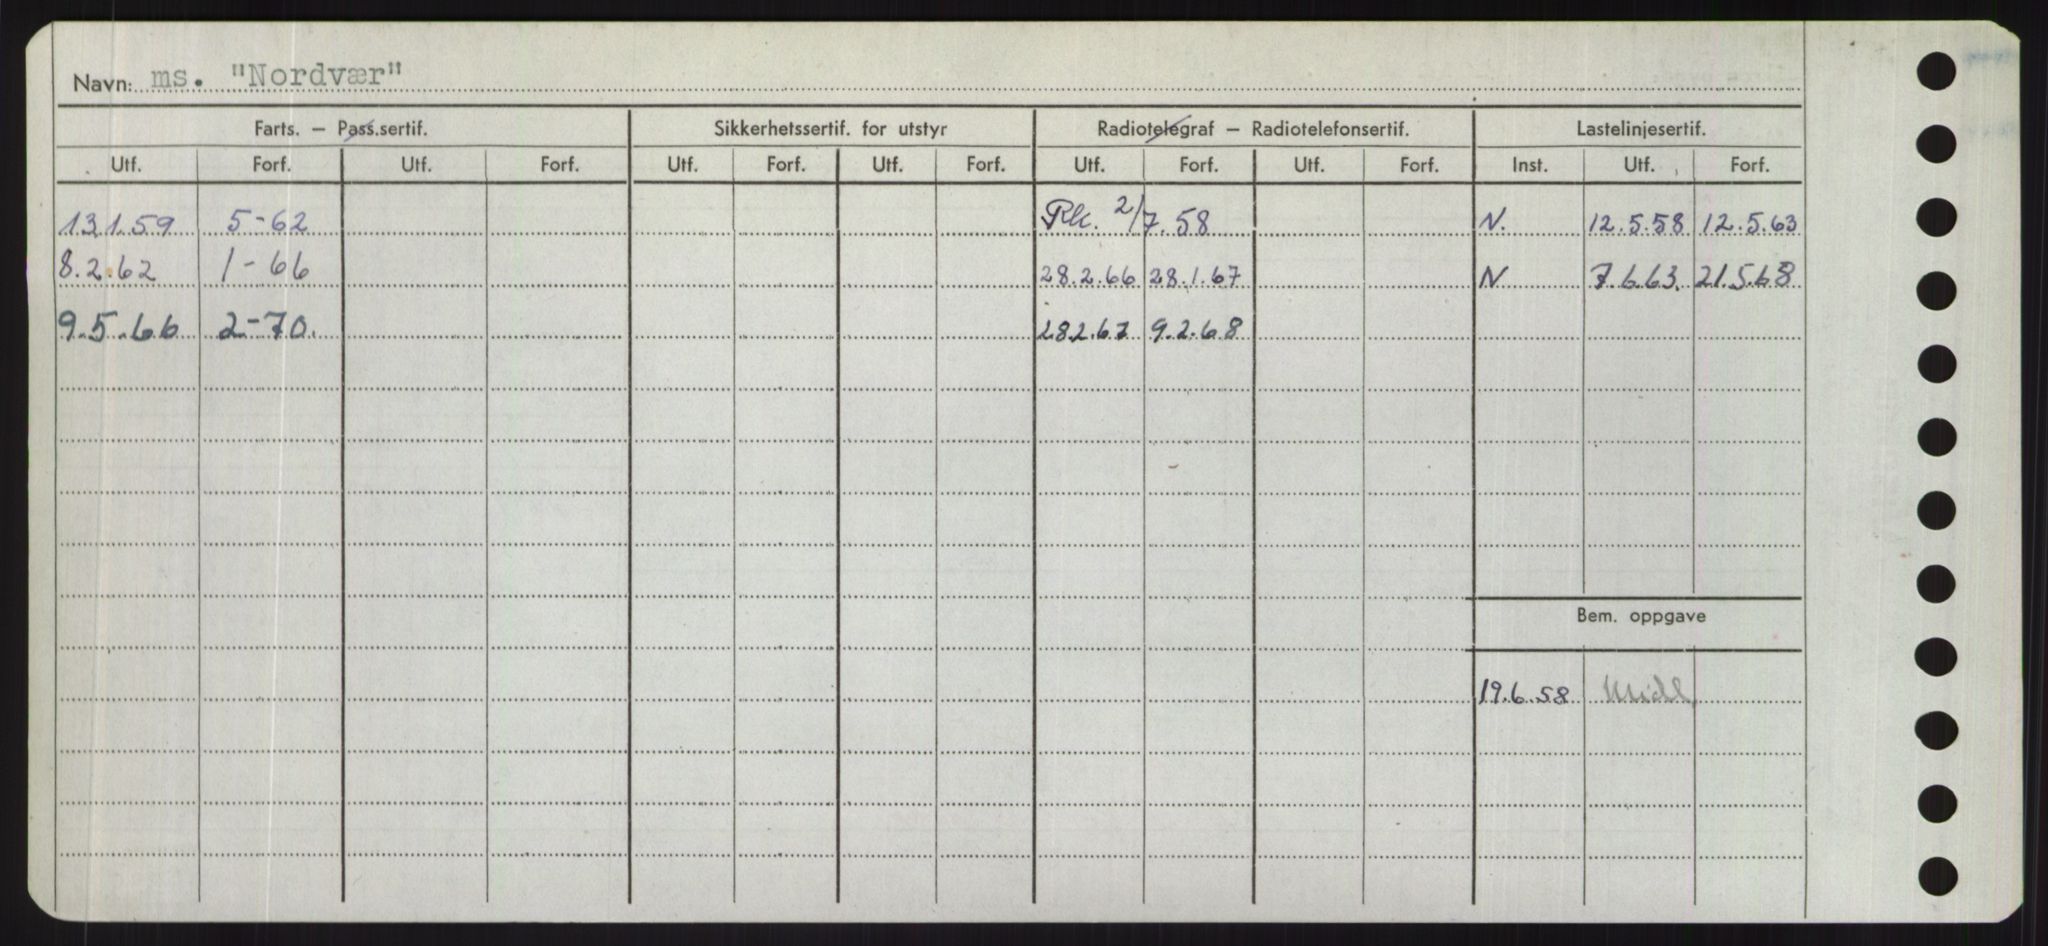 Navn: ms. "Nordvær"
Farts. – Pass.sertif. Sikkerhetssertif. for utstyr Radiotelegraf – Radiotelefonsertif. Lastelinjesertif.
Utf. Forf. Utf. Forf. Utf. Forf. Utf. Forf. Utf. Forf. Utf. Forf. Inst. Utf. Forf.
13.1.59 5-62 Rk. 2/7.58 N. 12.5.58 12.5.63
8.2.62 1-66 28.2.66 28.1.67 N 7.6.63. 21.5.68
9.5.66 2-70. 28.2.67 9.2.68
Bem. oppgave
19.6.58